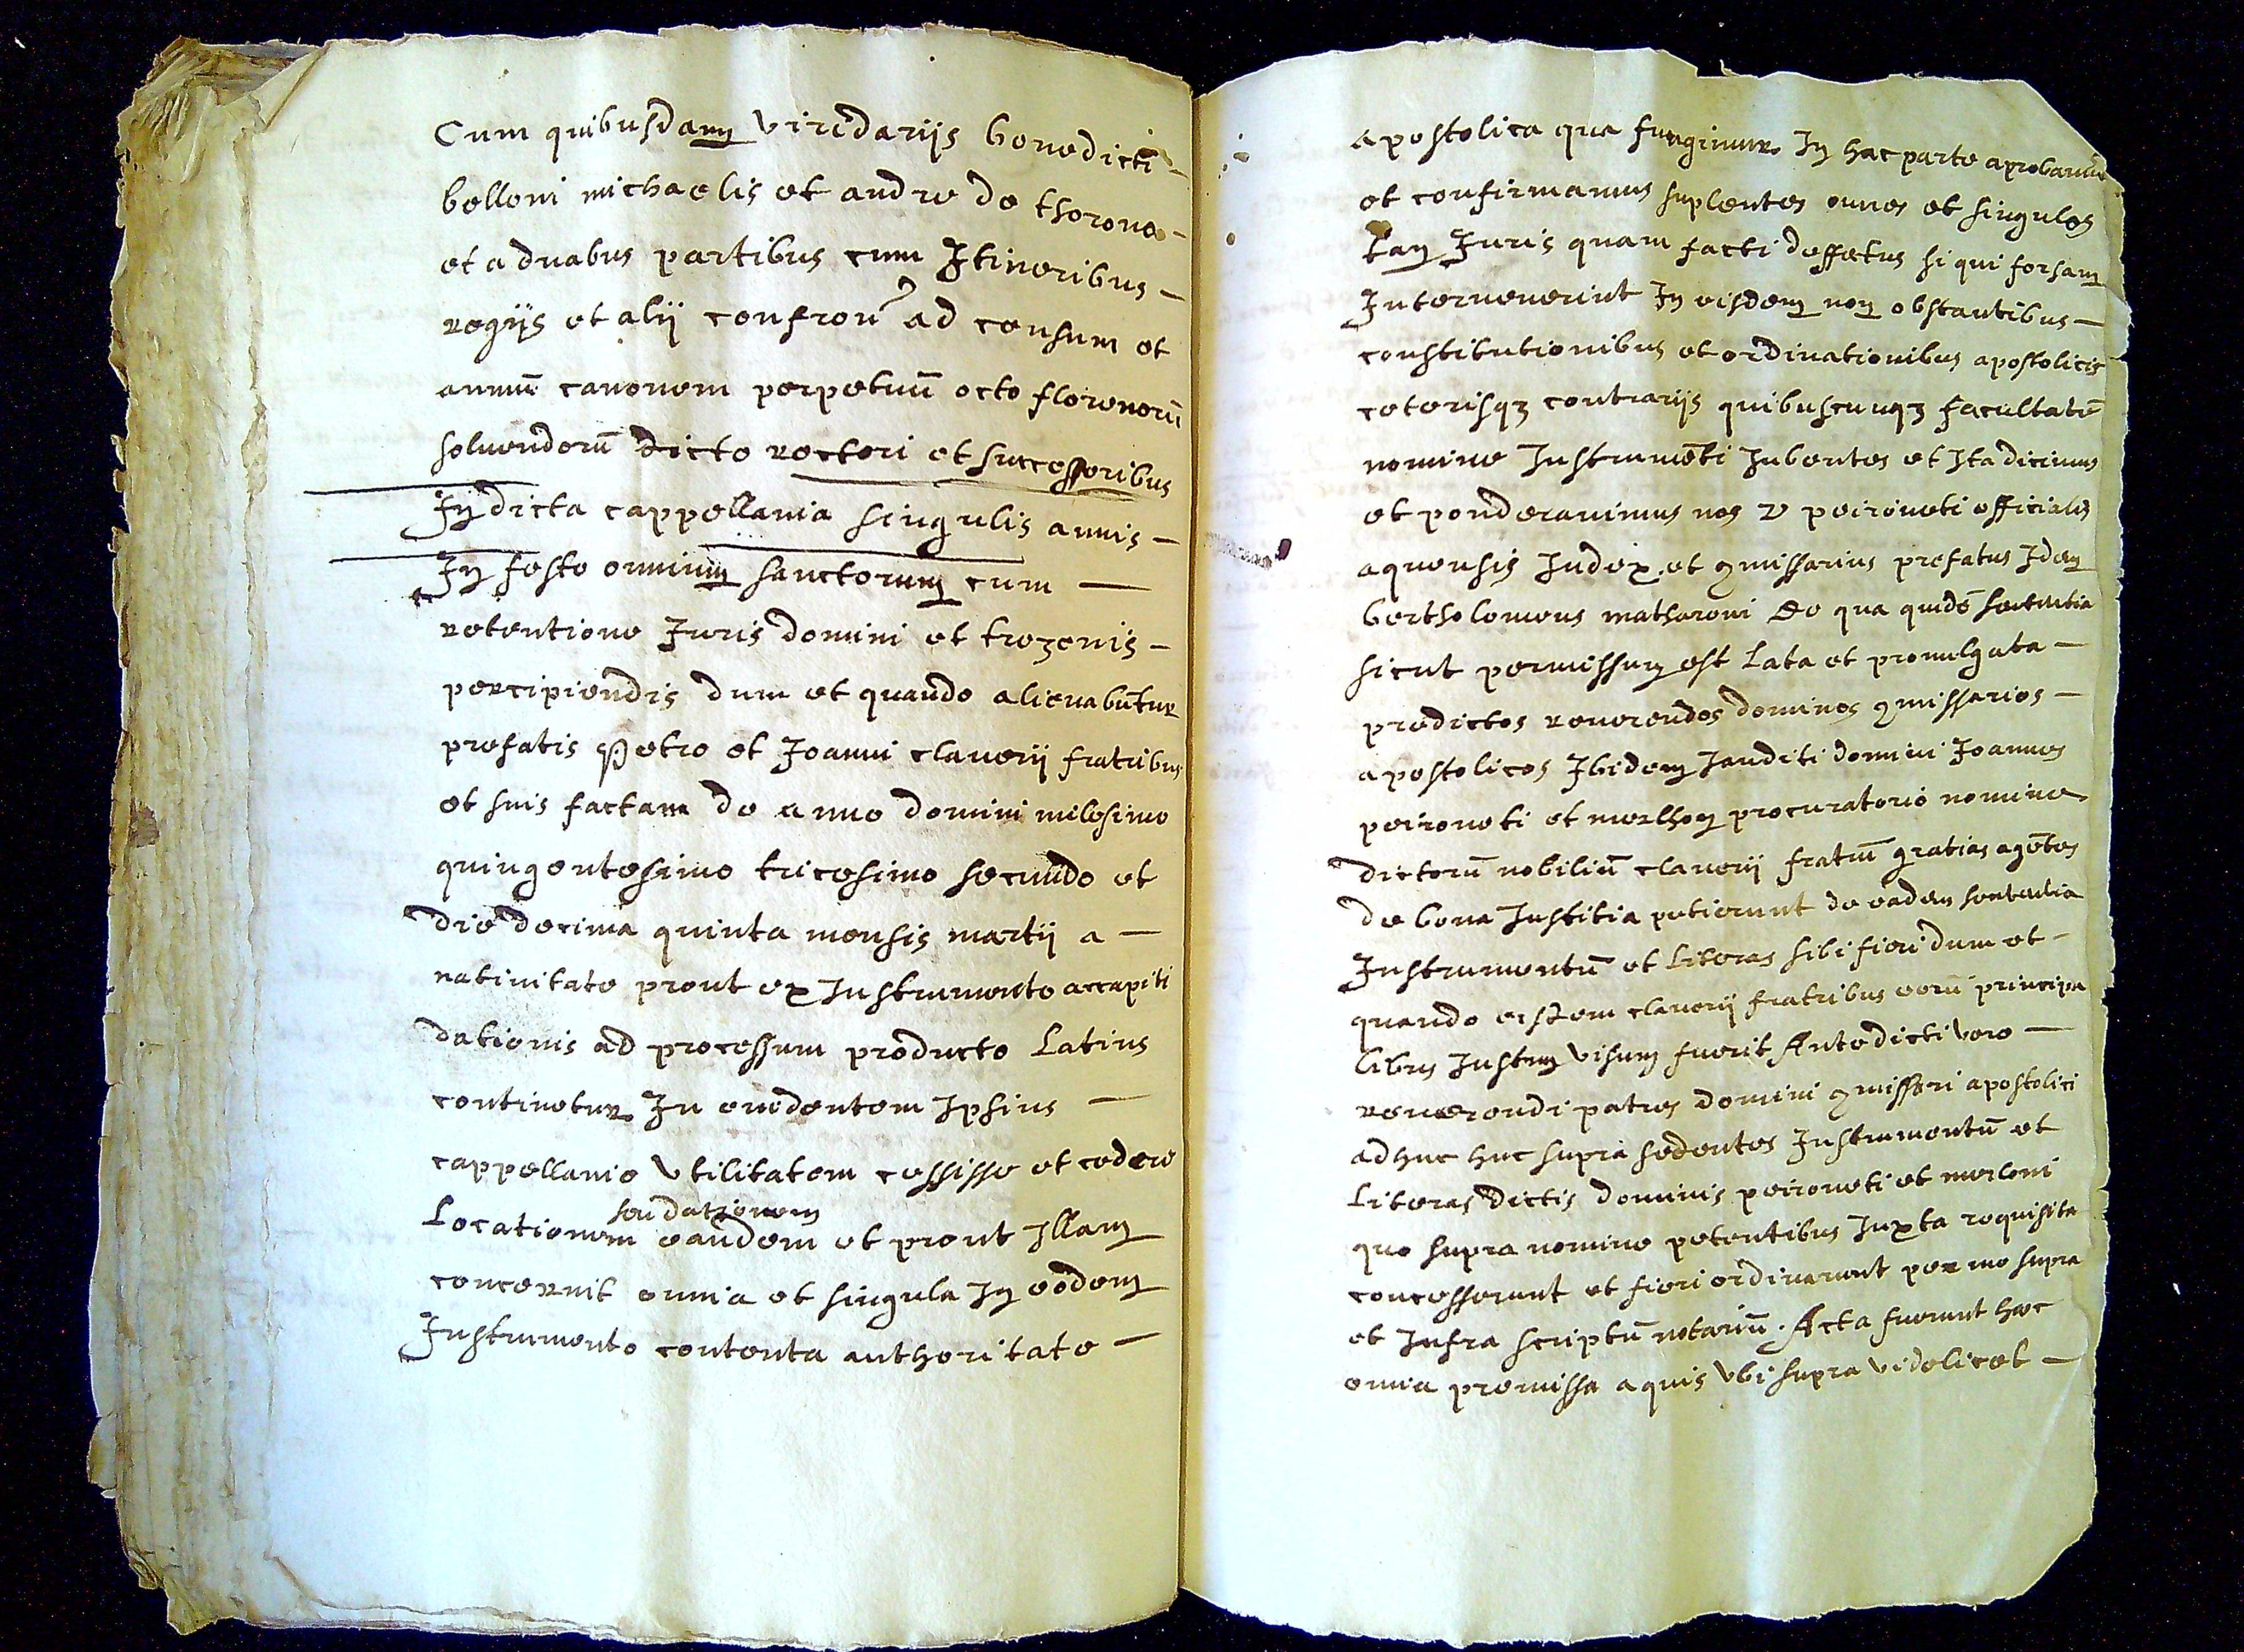 Cum quibusdam viredariis benedicti -
belloni michaelis et andre de thorona -
et a duabus partibus cum Itineribus -
regiis et alii confron ad censum et
annuū canonem perpetuū octo florenorū
soluendorū dicto rectori et successoribus
In dicta cappellania singulis annis -
In festo omnium sanctorum cum -
retentione Iuris domini et trezenis -
percipiendis dum et quando alienabūtur
prefatis petro et Joanni clauerii fratribus
et suis factam de anno domini milesimo
quingentesimo tricesimo secundo et
die decima quinta mensis martii a -
natiuitate prout ex Instrumento accapiti
dationis ad processum producto Latius
continetur In euidentem Ipsius -
cappellanie vtilitatem cessisse et cedere
seu dationem
Locationem eandem et prout Illam
concernit omnia et singula In eodem
Instrumento contenta authoritate -
apostolica qua fungimur In hac parte aprobamus
et confirmamus suplentes omnes et singulos
tam Juris quam facti deffetus si qui forsam
Interuenerint In eisdem non obstantibus -
constitutionibus et ordinationibus apostolicis
ceterisqz contrariis quibuscunqz facultatē
nomine Instrumēti Jubentes et Ita dicimus
et ponderauimus nos v peironeti officialis
aquensis Judex et 9missarius prefatus Idem
bertholomeus matharoni De qua quidē sententia
sicut permissum est Lata et promulgata -
predictos reuerendos dominos 9missarios -
apostolicos Ibidem Janditi domini Joannes
peironeti et merlhon procuratorio nomine
dictorū nobiliū clauerii fratrū gratias agētes
de bona Justitia petierunt de eadem sententia
Instrumentū et Literas sibi fieri dum et -
quando eisdem clauerii fratribus eorū principa
libus Justum visum fuerit Antedicti vero -
reuerendi patres domini 9missari apostolici
ad huc huc supra sedentes Instrumentū et
Literas dictis dominis peironeti et merloni
quo supra nomine petentibus Juxta requisita
concesserunt et fieri ordinarunt per me supra
et Infra scriptū notariū. Acta fuerunt hec
omnia premissa aquis vbi supra videlicet -